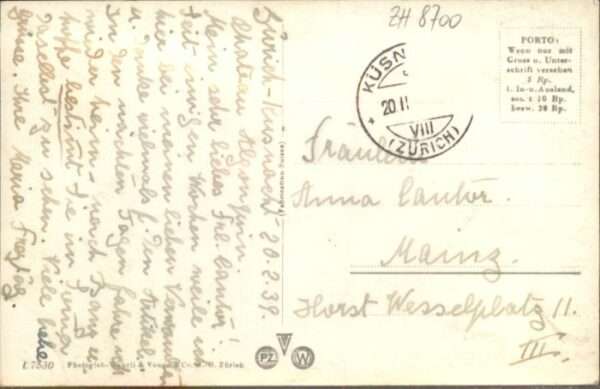 ZH 8700
PORTO:
Wenn nur mit
Gruss u. Unter-
schrift versehen
5 Rp.
i. In- u. Ausland,
sonst 10 Rp.
bezw. 20 Rp.
KÜSN
20 II
VIII
(ZÜRICH)
Zürich-Küsnacht 20.2.39.
Château
Mein sehr liebes Frl. Cantor!
Seit einigen Wochen weile ich
hier bei meinen lieben Verwandten
u. danke vielmals f. den Artikel.
In den nächsten Tagen fahre ich
wieder heim nach u.
hoffe bestimmt Sie im
daselbst zu sehen. Viele liebe
Grüsse. Ihre Freytag.
Fräulein
Anna Cantor.
Mainz.
Horst Wesselplatz 11.
III.
L 7530
Photoglob-Wehrli & Vouga & Co. A. G. Zürich
PZ W